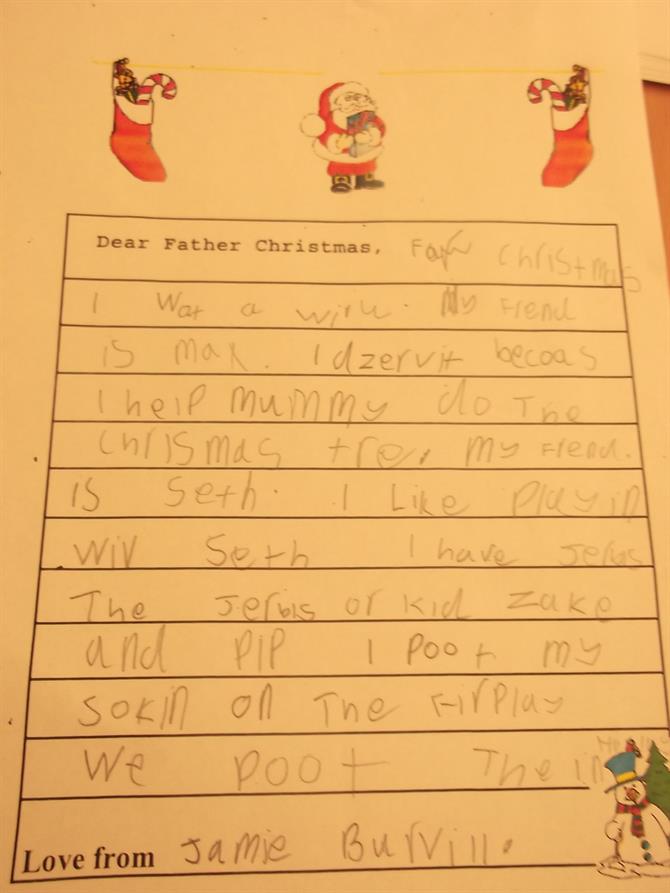 Dear Father Christmas, Christmas
I Wat a My Frend
is max. I dzervit becoas
I help Mummy do The
Christmas tre. my Frend.
IS Seth. I Like Playin
wiv Seth I have Jerbis
The Jerbis or kid Zake
and PIP I Poot my
SoKin on The Firplay
We Poot The in
Love from Jamie Burvill.